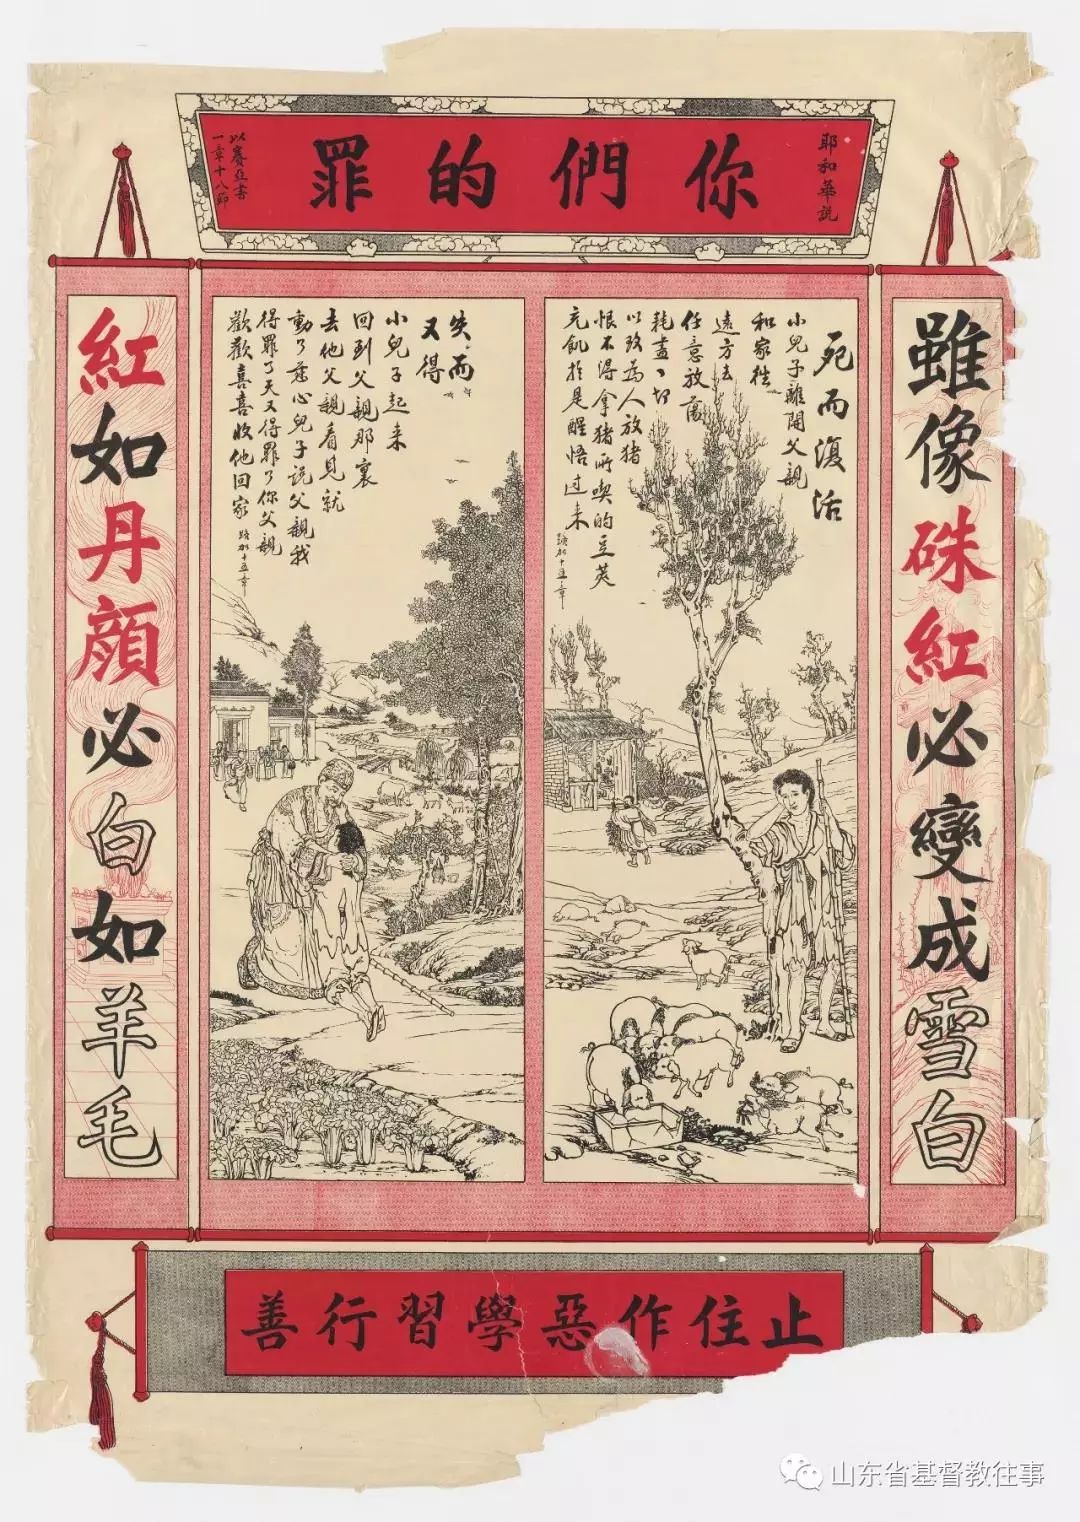 耶和華説
你們的罪
以賽亞書
一章十八節
雖像硃紅必變成雪白
死而復活
小兒子離開父親
和家往
遠方去
任意放蕩
耗盡一切
以致為人放猪
恨不得拿猪所喫的豆莢
充飢於是醒悟過来
路加十五章
失而
又得
小兒子起来
回到父親那裏
去他父親看見就
動了慈心兒子説父親我
得罪了天又得罪了你父親
歡歡喜喜收他回家
路加十五章
紅如丹顔必白如羊毛
止住作惡學習行善
山东省基督教往事